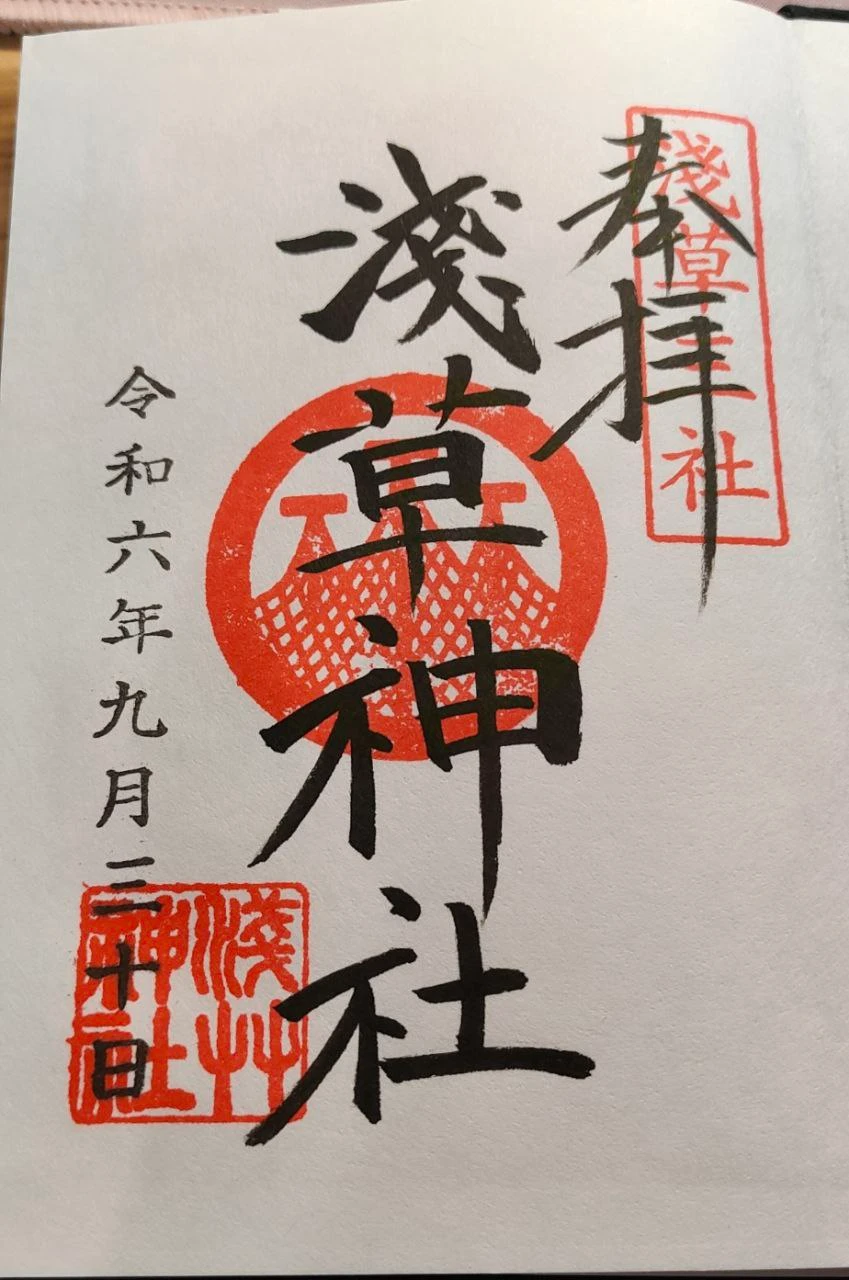 奉拝
淺草三社
淺草神社
令和六年九月三十日
淺艸
神社